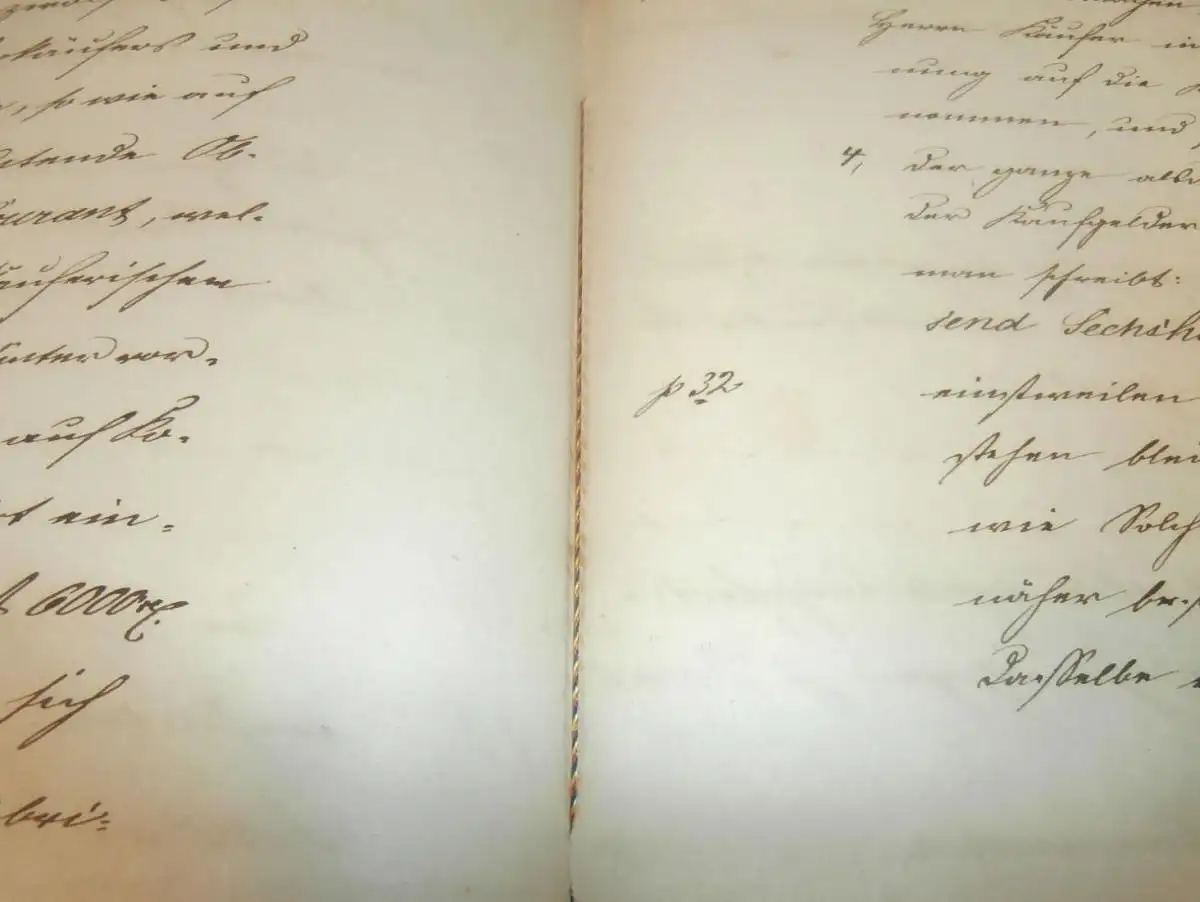 käufers und
, so wie auf
tende Ob-
Courant, wel-
käuferischen
unter vor-
auf Ko-
t ein-
6000 rℓ.
sich
bri-
Herrn Käufer in
nung auf die
nommen, und
4, der ganze als
der Kaufgelder
man schreibt:
send Sechsh
p 32
einstweilen
stehen blei
wie Solch
näher be
dasselbe